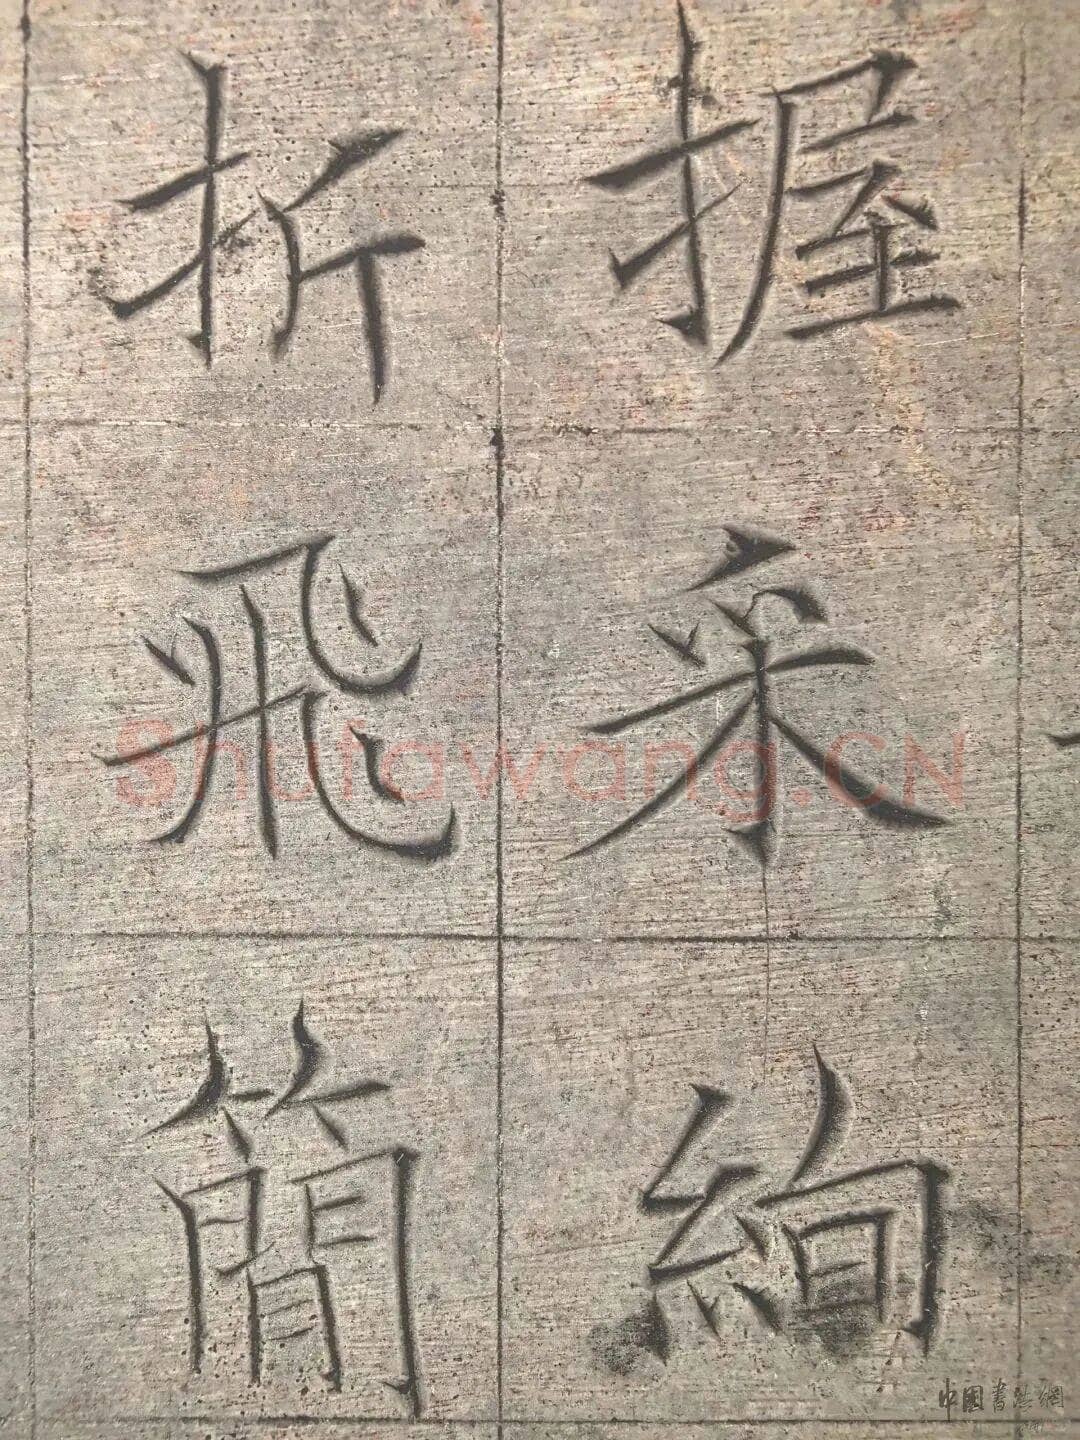 握采絢
折飛簡
Shufawang.CN
中國書法網